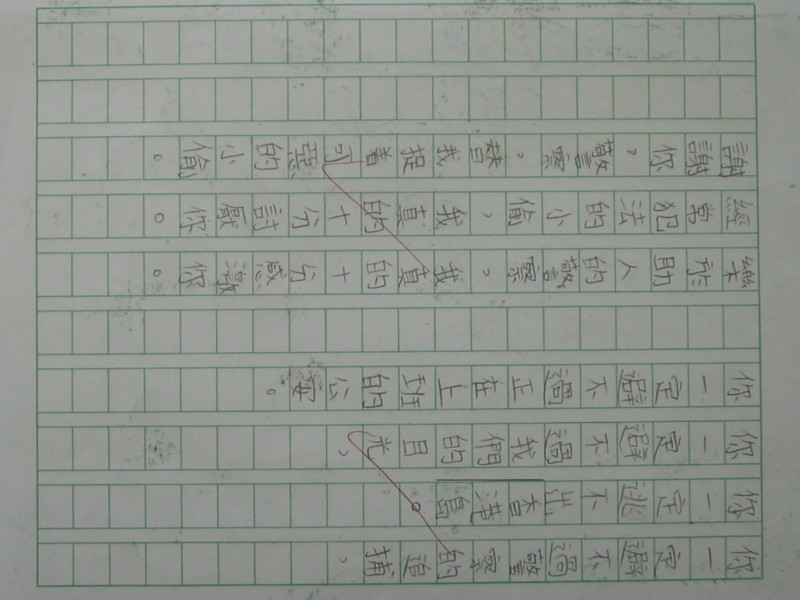 你一定避不過警察的追捕，
你一定逃不出香港島。
你一定避不過我們的目光，
你一定避不過正在上班的公安。
樂於助人的警察，我真的十分感激你。
經常犯法的小偷，我真的十分討厭你。
謝謝你，警察，替我捉着可惡的小偷。